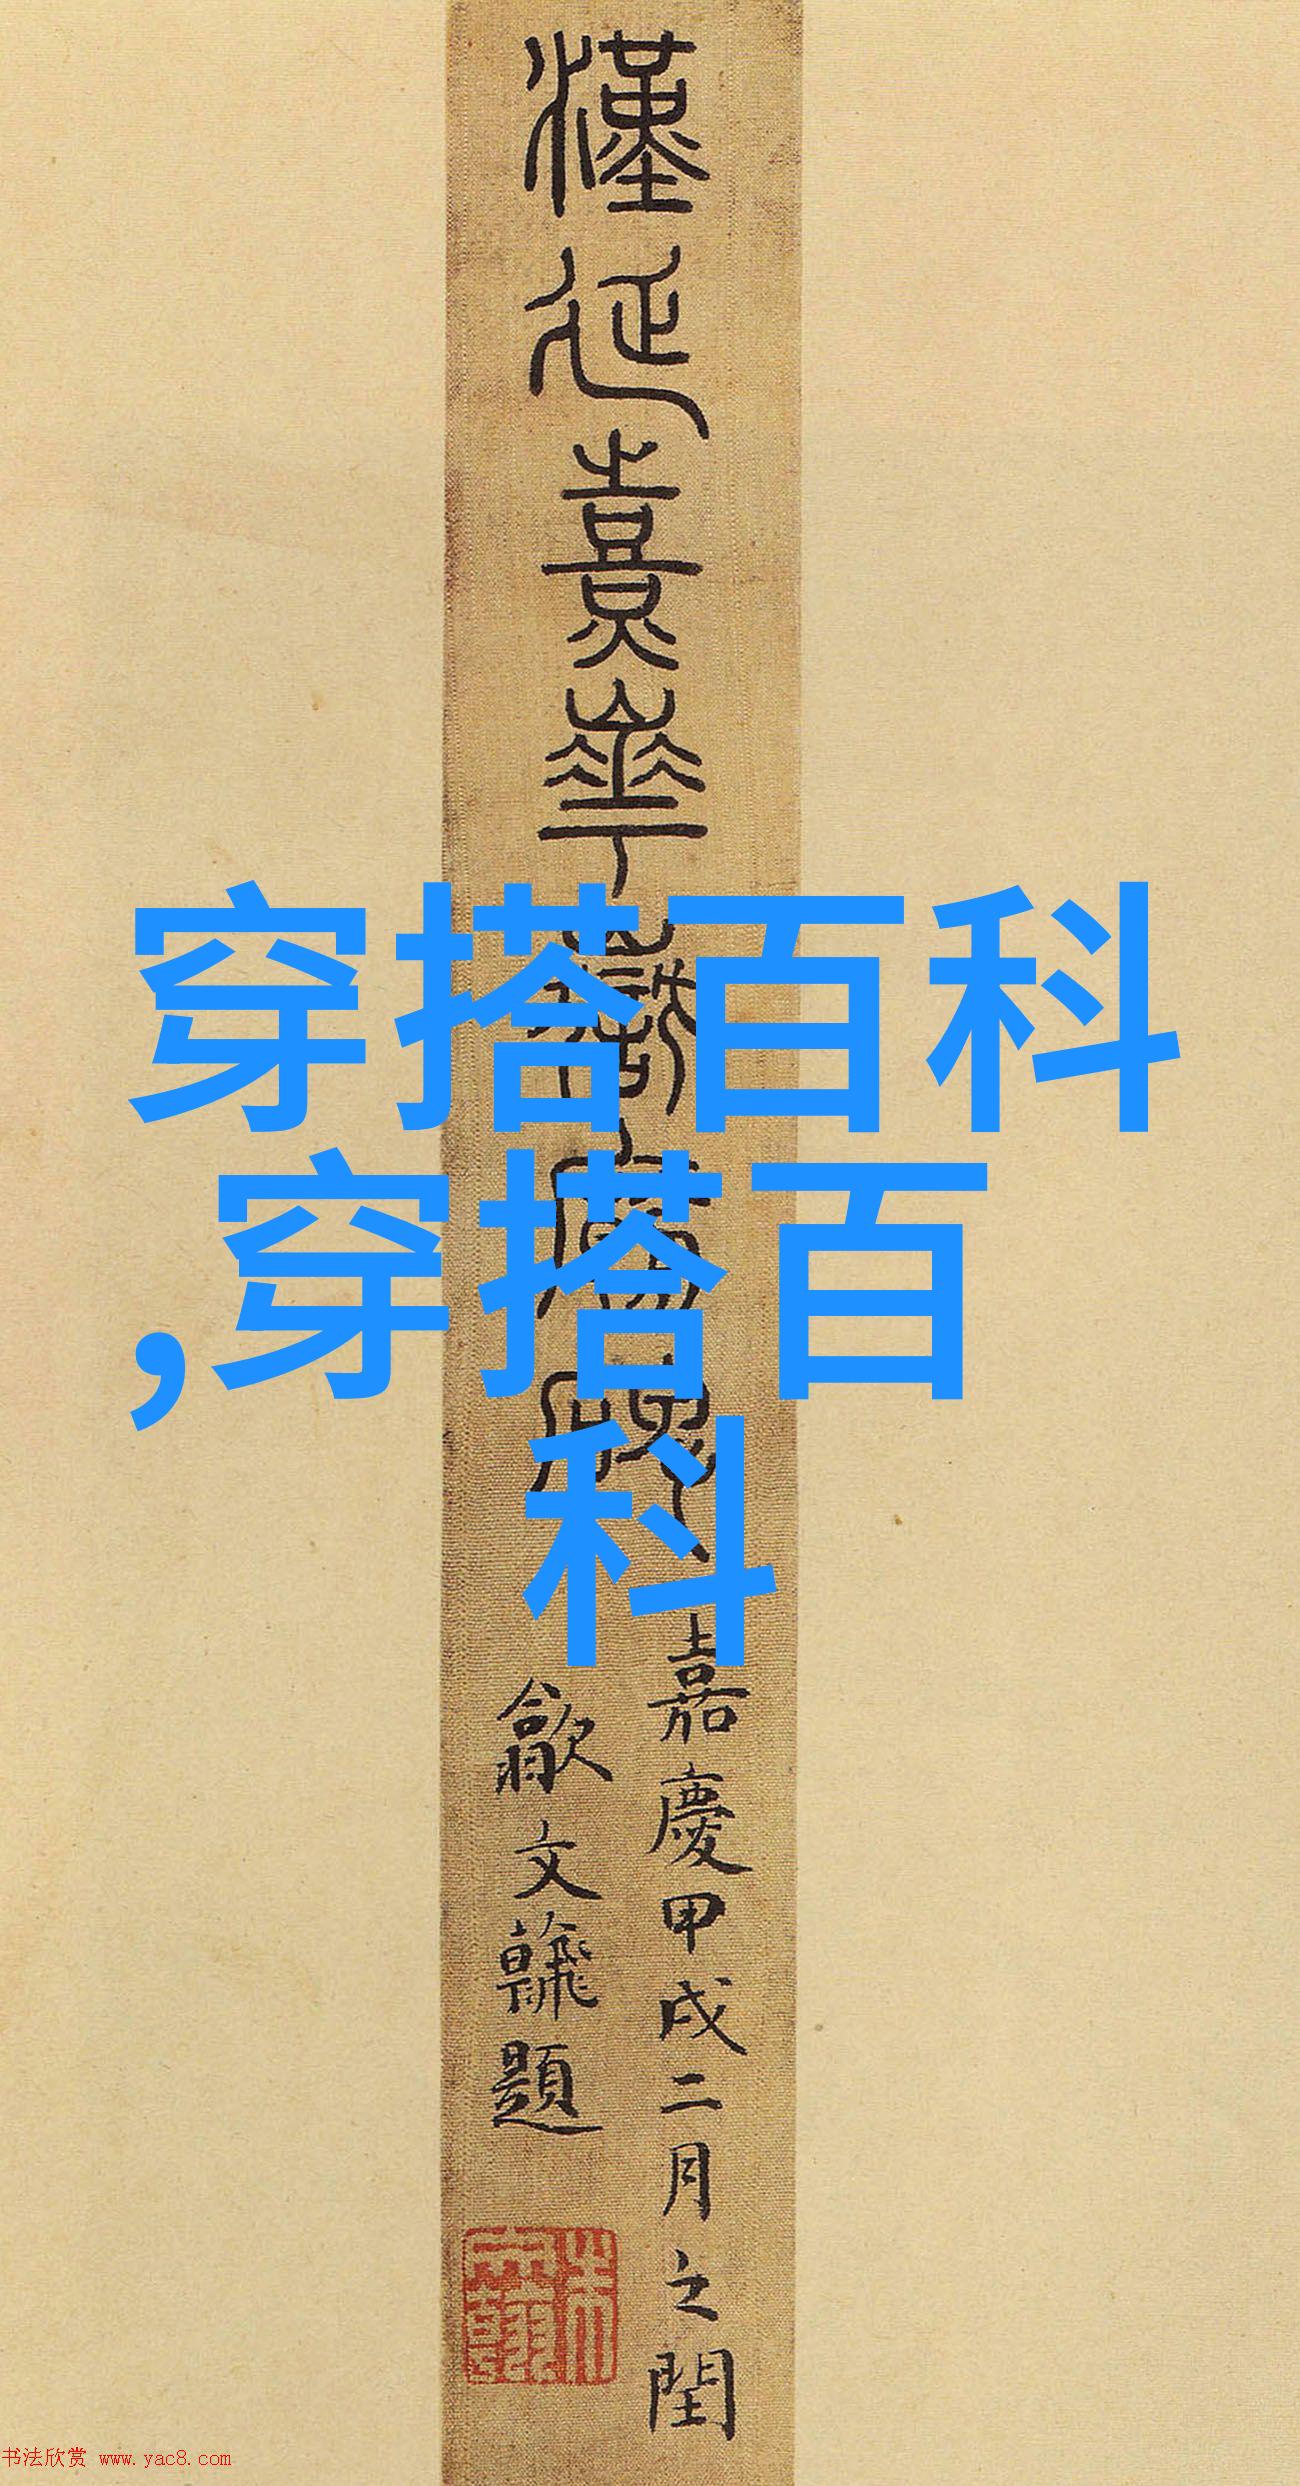 漢延熹華嶽廟碑
穿搭百科
,穿搭百
科
嘉慶甲戌二月之閏
歙文翰題
书法欣赏 www.yac8.com